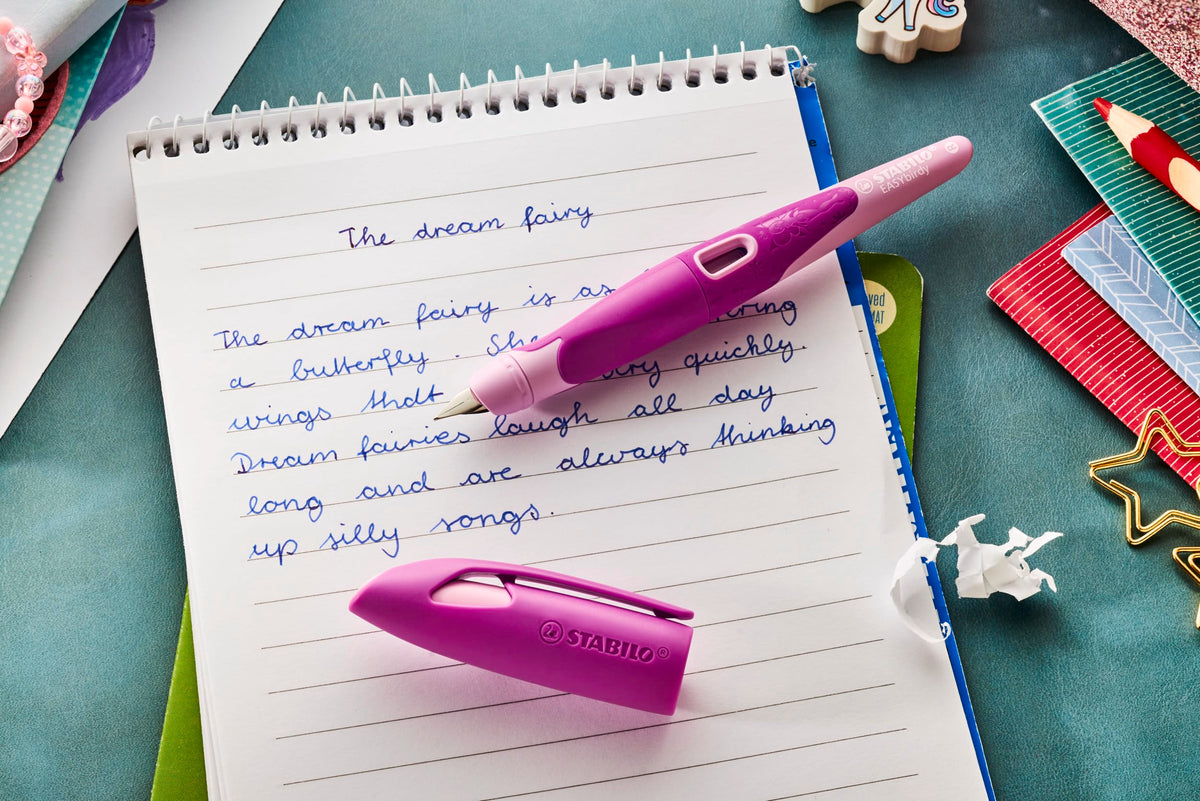 The dream fairy
The dream fairy is as
a butterfly. She
wings thdt very quickly.
Dream fairies laugh all day
long and are always thinking
up silly songs.
STABILO
EASYbirdy
STABILO®